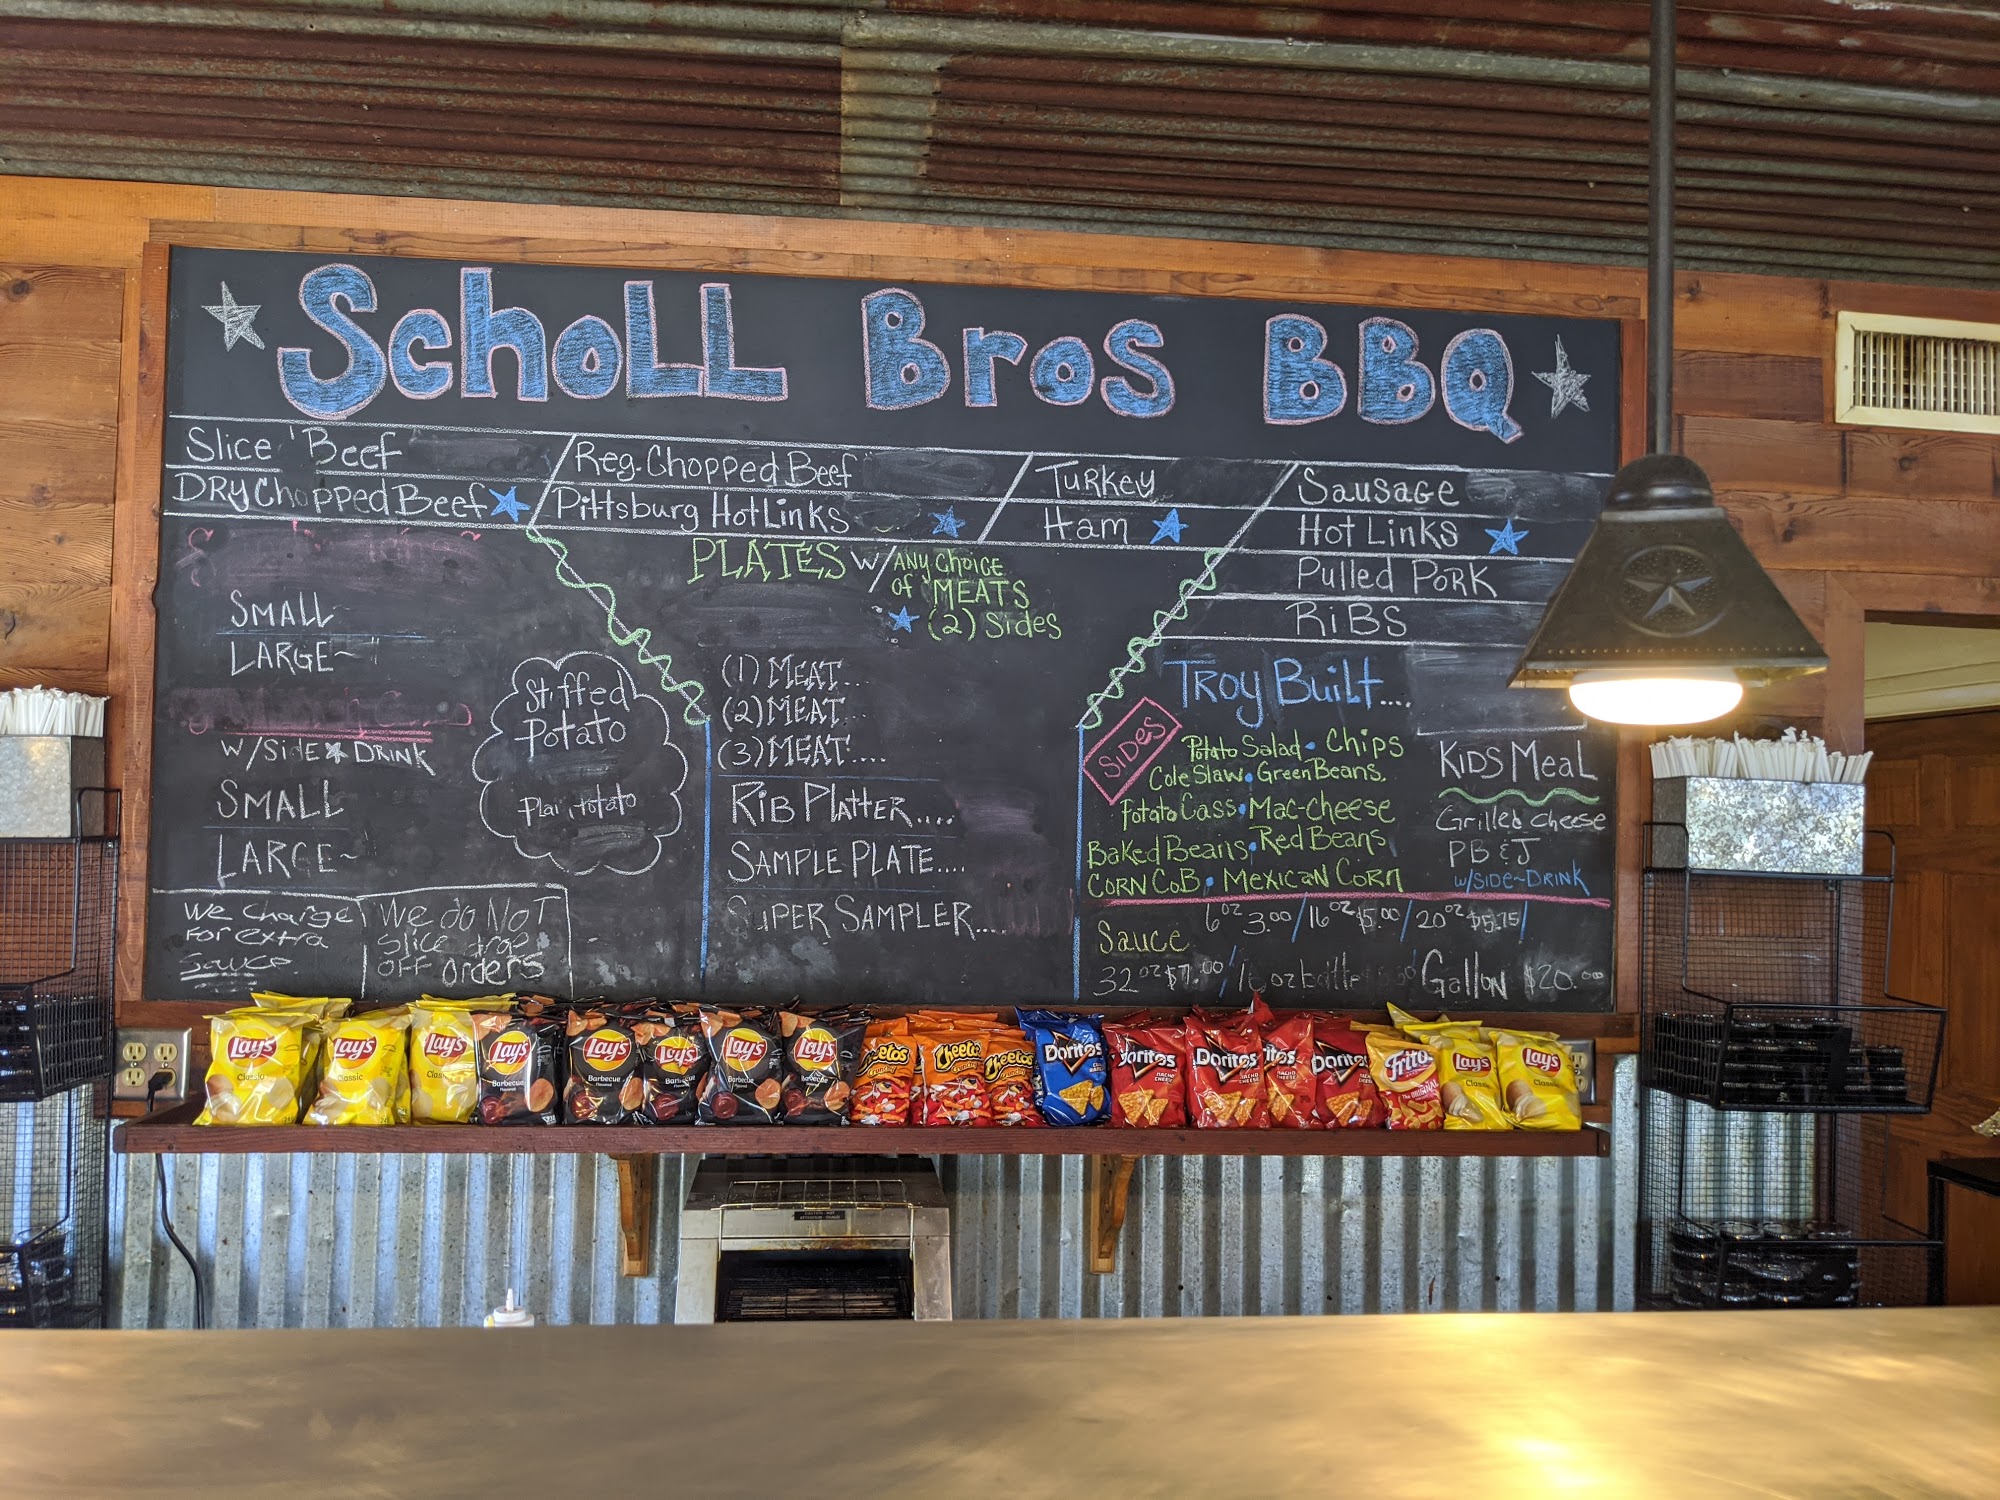 SchoLL Bros BBQ
Slice Beef
DRY Chopped Beef
Reg. Chopped Beef
Pittsburg Hot Links
Turkey
Ham
Sausage
Hot Links
Pulled Pork
RiBS
SMALL
LARGE~
W/SIDE DRINK
SMALL
LARGE~
We Charge
For extra
sauce
We do NOT
slice
OFF orders
Stuffed
Potato
Plain Potato
PLATES W/ ANY CHOICE
of MEATS
(2) Sides
(1) MEAT...
(2) MEAT...
(3) MEAT....
RiB PLatter....
SAMPLE PLATE....
SUPER SAMPLER....
Troy Built....
SiDES
Potato Salad • Chips
Cole Slaw • Green Beans.
Potato Cass • Mac-cheese
Baked Beans • Red Beans
CORN COB • MEXICAN CORN
KiDS MeaL
Grilled cheese
PB & J
W/SIDE~DRINK
Sauce 6oz 3.00 / 16oz $5.00 / 20oz $5.75 /
32oz $7.00 / Gallon $20.00
Lay's Classic
Lay's Classic
Lay's Classic
Lay's Barbecue Flavored
Lay's Barbecue
Lay's Barbecue
Lay's Barbecue
Lay's Barbecue
Cheetos Crunchy
Cheetos Crunchy
Cheetos Crunchy
Doritos COOL RANCH
Doritos NACHO CHEESE
Doritos NACHO CHEESE
Doritos NACHO CHEESE
Doritos NACHO CHEESE
Fritos The ORIGINAL
Lay's Classic
Lay's Classic